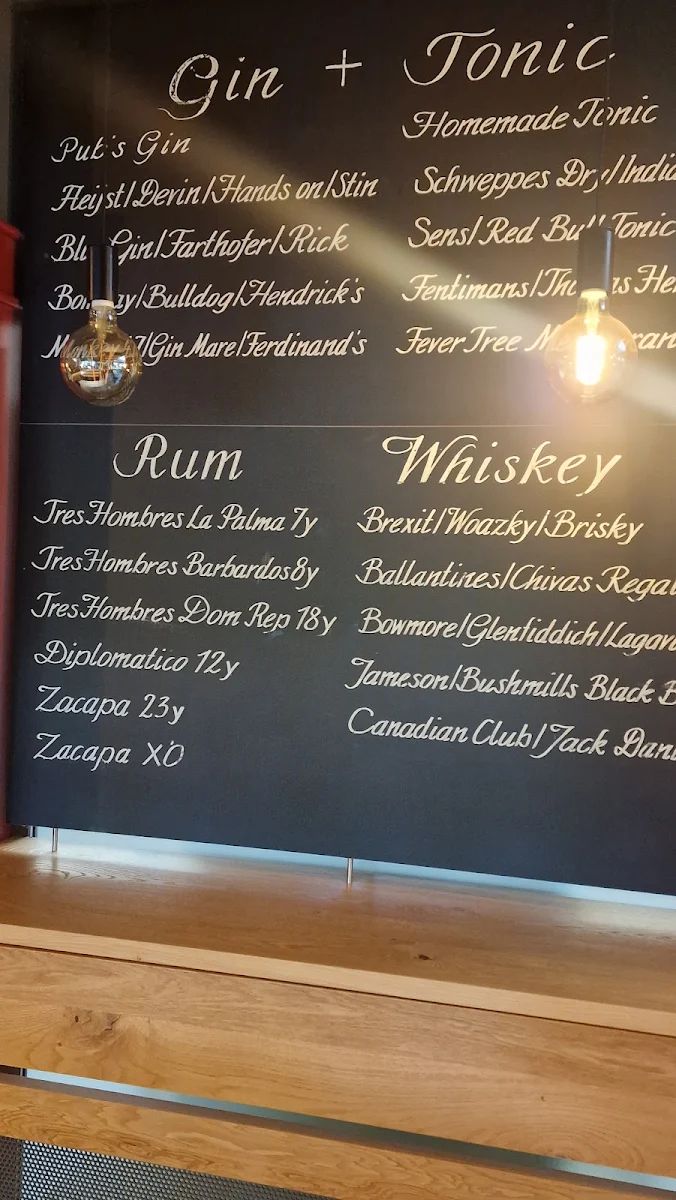 Gin + Tonic
Pub's Gin
Heijst/Devin/Hands on/Stin
Gin/Farthofer/Rick
/Bulldog/Hendrick's
/Gin Mare/Ferdinand's
Homemade Tonic
Schweppes Dry/India
Sens/Red Bull Tonic
Fentimans/
Fever Tree
Rum
Tres Hombres La Palma 7y
Tres Hombres Barbardos 8y
Tres Hombres Dom Rep 18y
Diplomatico 12y
Zacapa 23y
Zacapa XO
Whiskey
Brexit/Woazky/Brisky
Ballantines/Chivas Regal
Bowmore/Glenfiddich/Lagav
Jameson/Bushmills Black B
Canadian Club/Jack Dani